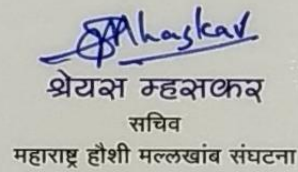 Mhaskar
श्रेयस म्हसकर
सचिव
महाराष्ट्र हौशी मल्लखांब संघटना